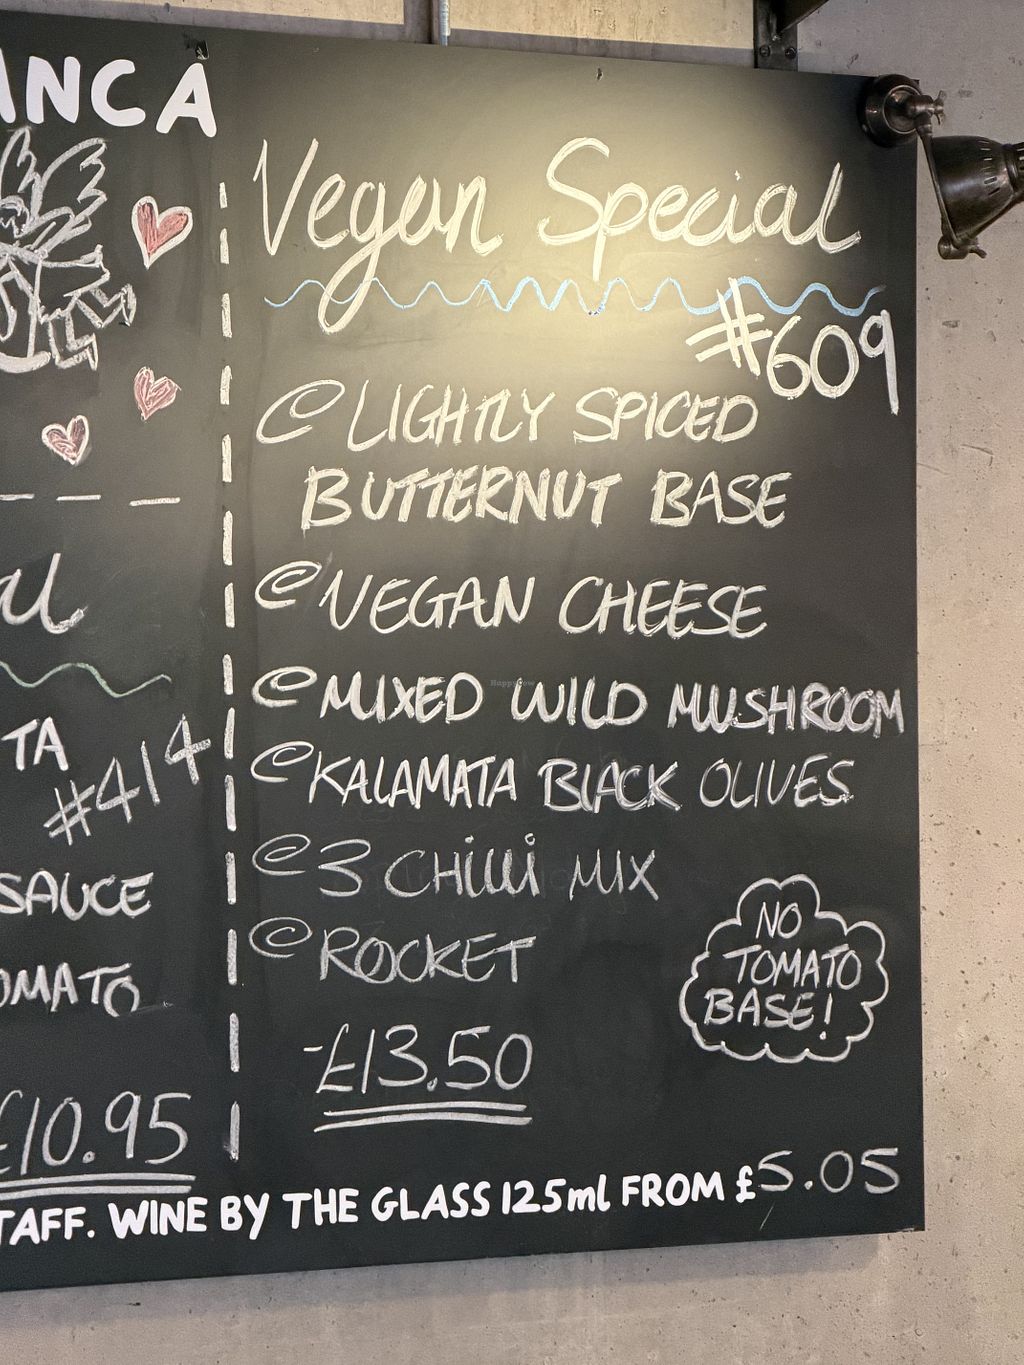 ANCA
Vegan Special
#609
LIGHTLY SPICED
BUTTERNUT BASE
VEGAN CHEESE
MIXED WILD MUSHROOM
KALAMATA BLACK OLIVES
3 CHILLI MIX
ROCKET
NO
TOMATO
BASE!
-£13.50
TA
#414
SAUCE
OMATO
£10.95
TAFF. WINE BY THE GLASS 125ml FROM £5.05
HappyCow